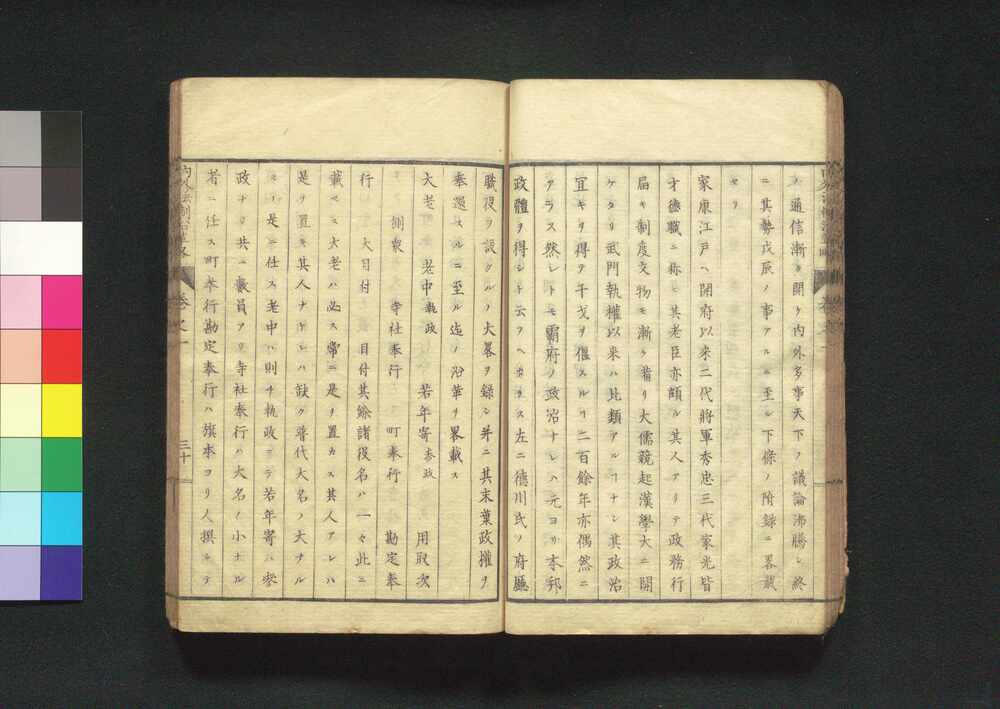 ノ通信漸ク開ケ内外多事天下ノ議論沸騰シ終
ニ其勢戊辰ノ事アルニ至ル下條ノ附録ニ畧載
セリ
家康江戸ヘ開府以来二代將軍秀忠三代家光皆
才德職ニ称ヒ其老臣亦頗ル其人アリテ政務行
届キ制度文物モ漸ク備リ大儒競起漢學大ニ開
ケタリ武門執權以来ハ比類アルヿナシ其政治
宜キヲ得テ干戈ヲ偃スルヿ二百餘年亦偶然ニ
アラス然レトモ霸府ノ政治ナレハ元ヨリ本邦
政體ヲ得シト云フヘカラス左ニ德川氏ノ府廳
職役ヲ設クルノ大畧ヲ録シ并ニ其末葉政權ヲ
奉還スルニ至ル迄ノ沿革ヲ畧載ス
大老 老中執政 若年寄参政 用取次
側衆 寺社奉行 町奉行 勘定奉
行 大目付 目付其餘諸役名ハ一々此ニ
載セス大老ハ必ス常ニ是ヲ置カス其人アレハ
是ヲ置キ其人ナケレハ缺ク普代大名ノ大ナル
モノ是ニ任ス老中ハ則チ執政ニテ若年寄ハ参
政ナリ共ニ數員アリ寺社奉行ハ大名ノ小ナル
者ニ任ス町奉行勘定奉行ハ旗本ヨリ人撰シテ
内外法制沿革畧 巻之一 三十